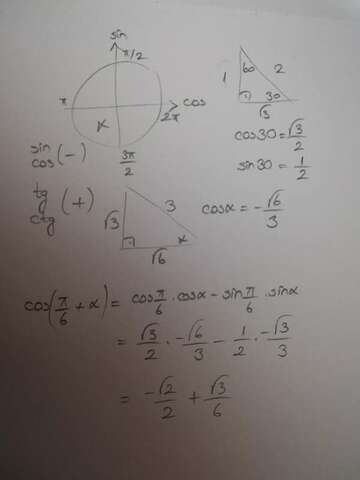 sin
π/2
π
cos
2π
α
3π/2
60
1
2
30
√3
cos30=√3/2
sin30=1/2
sin
cos (-)
tg
ctg (+)
√3
3
α
√6
cosα=-√6/3
cos(π/6+α)=cosπ/6·cosα-sinπ/6·sinα
=√3/2·-√6/3-1/2·-√3/3
=-√2/2+√3/6